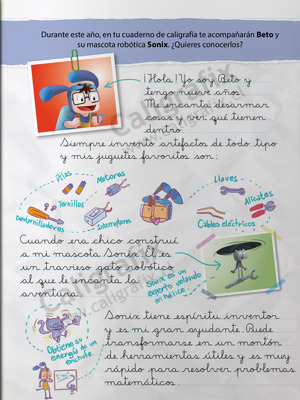 Durante este año, en tu cuaderno de caligrafía te acompañarán Beto y
su mascota robótica Sonix. ¿Quieres conocerlos?
¡Hola! Yo soy Beto y
tengo nueve años.
Me encanta desarmar
cosas y ver qué tienen
dentro.
Siempre invento artefactos de todo tipo
y mis juguetes favoritos son:
Pilas
Motores
Llaves
Tornillos
Alicates
Destornilladores
Interruptores
Cables eléctricos
Cuando era chico construí
a mi mascota Sonix. Él es
un travieso gato robótico
al que le encanta la
aventura.
Sonix es un
experto volando
en hélice
Obtiene su
energía de un
enchufe
Sonix tiene espíritu inventor
y es mi gran ayudante. Puede
transformarse en un montón
de herramientas útiles y es muy
rápido para resolver problemas
matemáticos.
Caligrafix
www.caligrafix